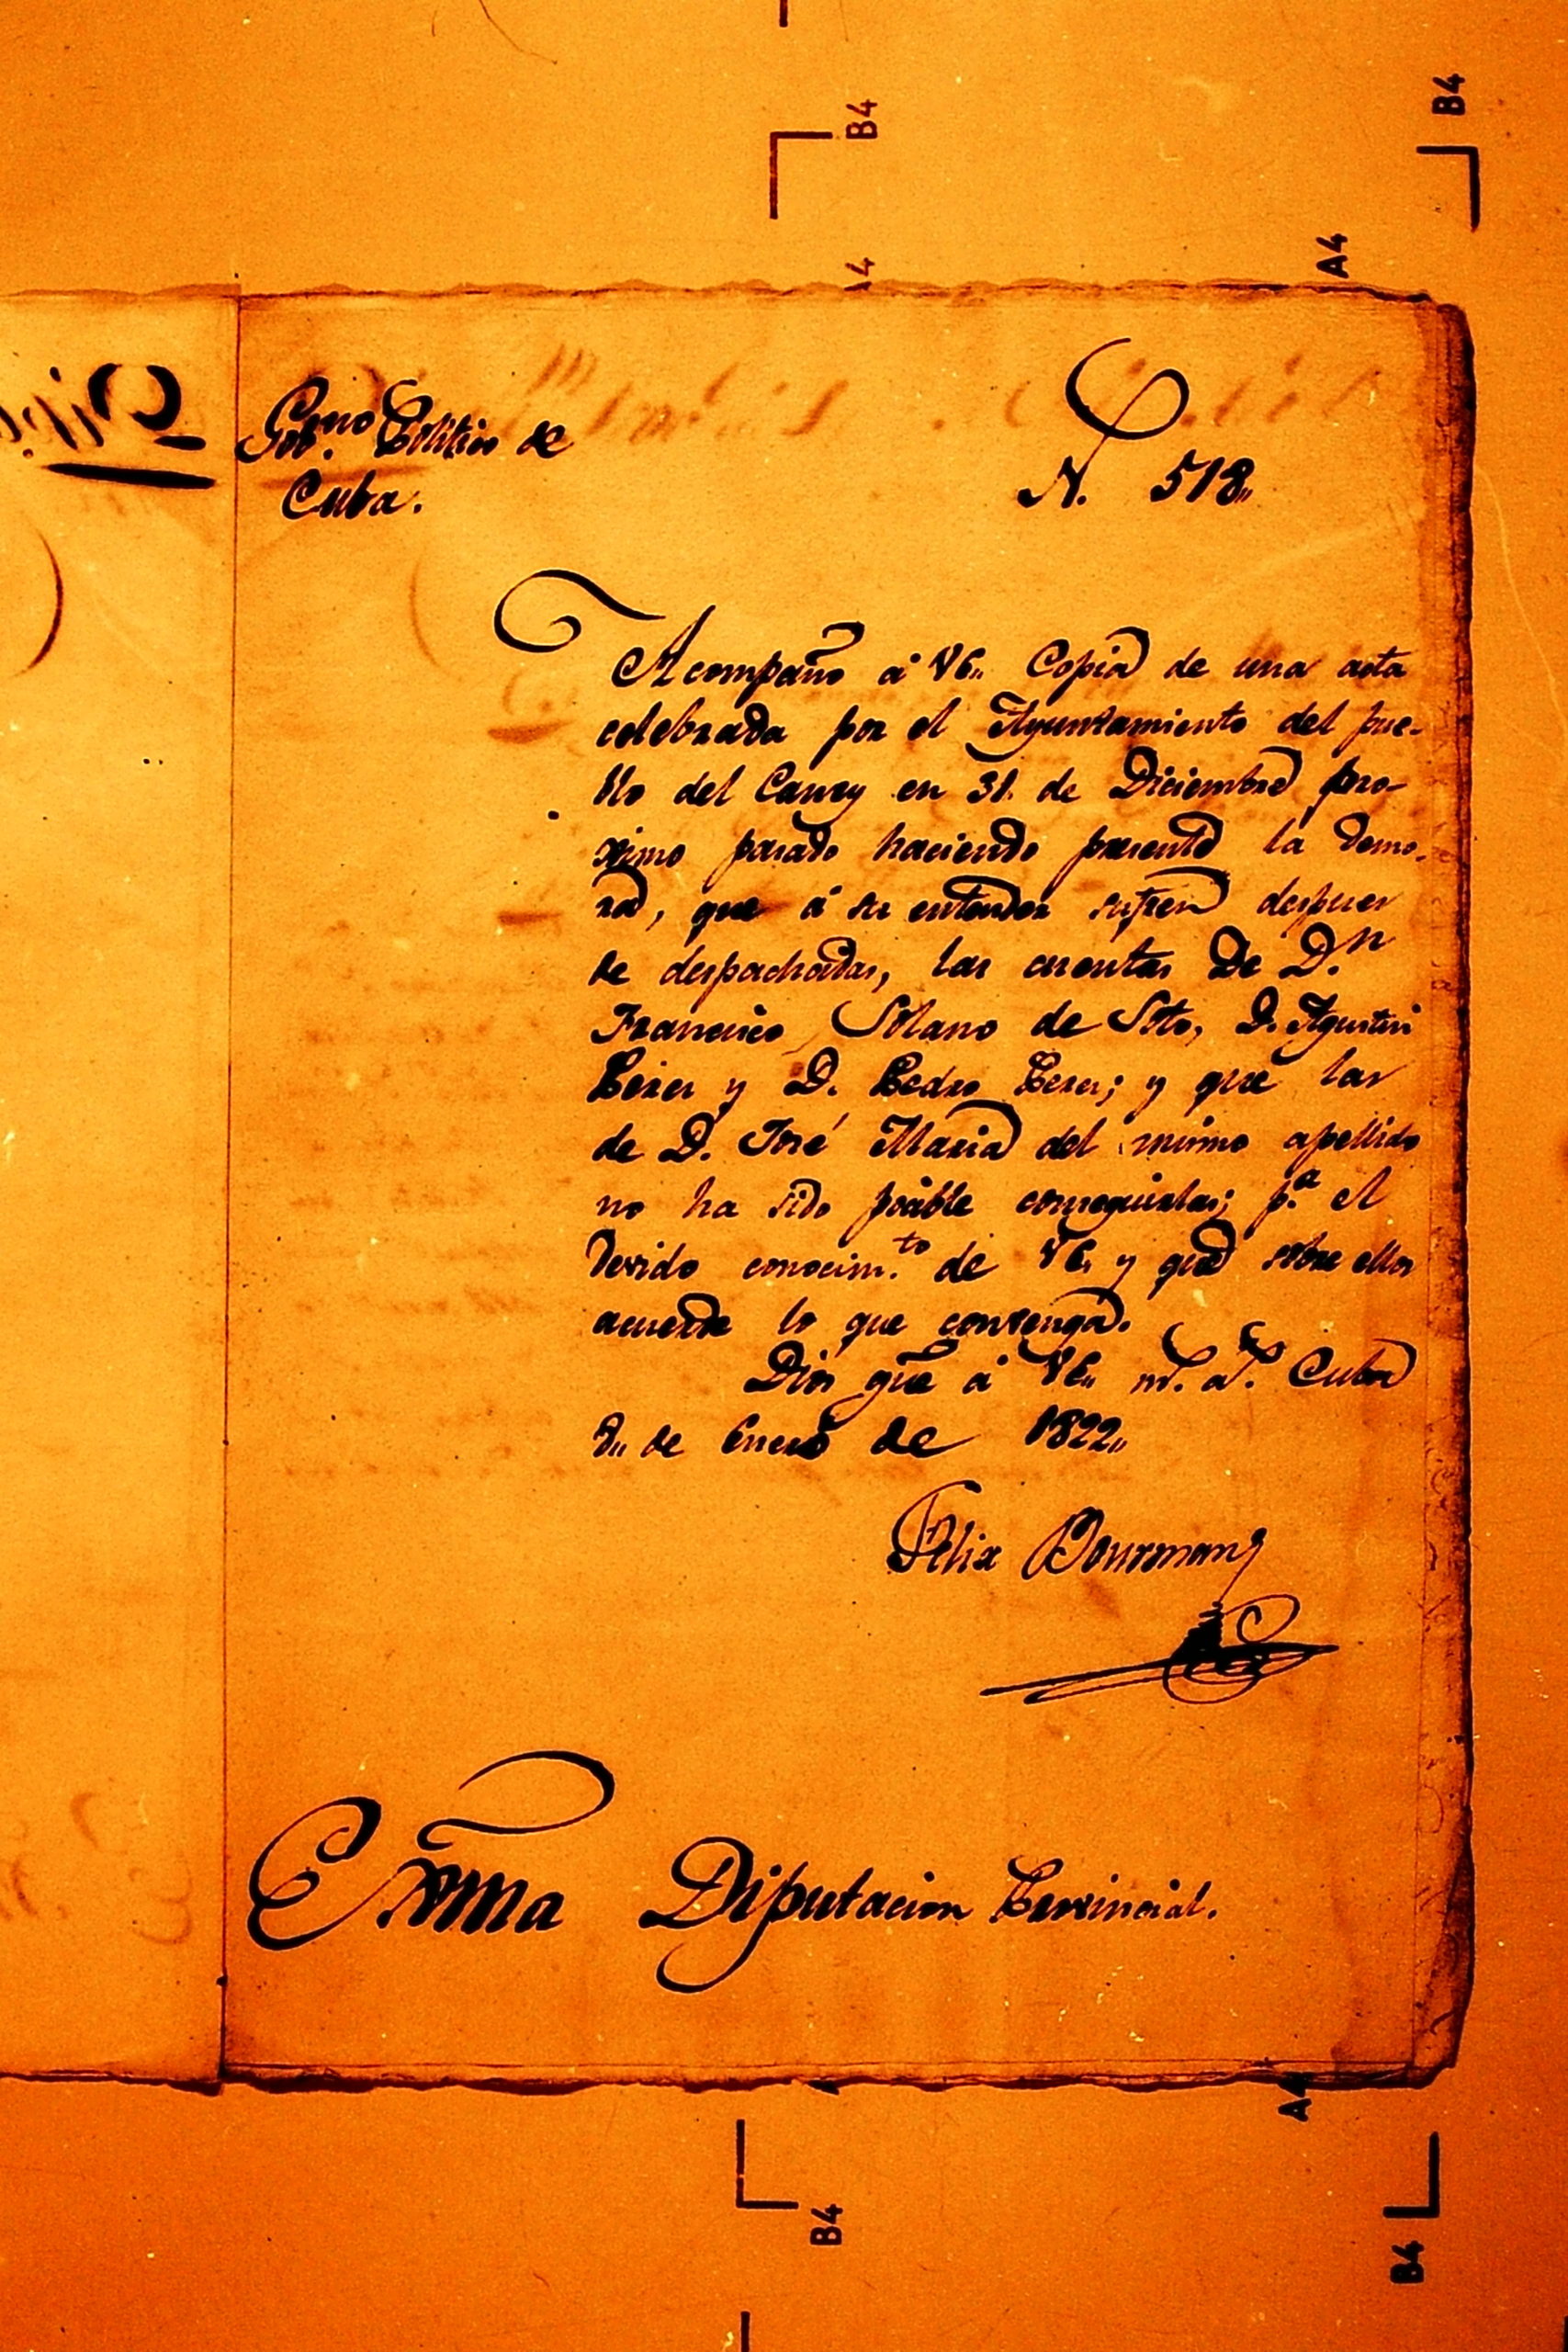 Gob.no Politico de
Cuba.
N. 518,,
Acompaño á VE,, Copia de una acta
celebrada por el Ayuntamiento del pue-
blo del Caney en 31. de Diciembre pro-
ximo pasado haciendo presente la demo-
ra, que á su entender sufren despues
de despachadas, las cuentas de D.n
Francisco Solano de Soto, D. Agustin
Perez y D. Pedro Perez; y que las
de D. José Maria del mismo apellido
no ha sido posible conseguirlas; p.a el
devido conocim.to de VE, y que sobre ellos
acuerde lo que convenga.
Dios gue á VE,, m.s a.s Cuba
de Enero de 1822,,
Felix Bourman
Exma Diputacion Provincial.
B4
B4
A4
A4
B4
B4